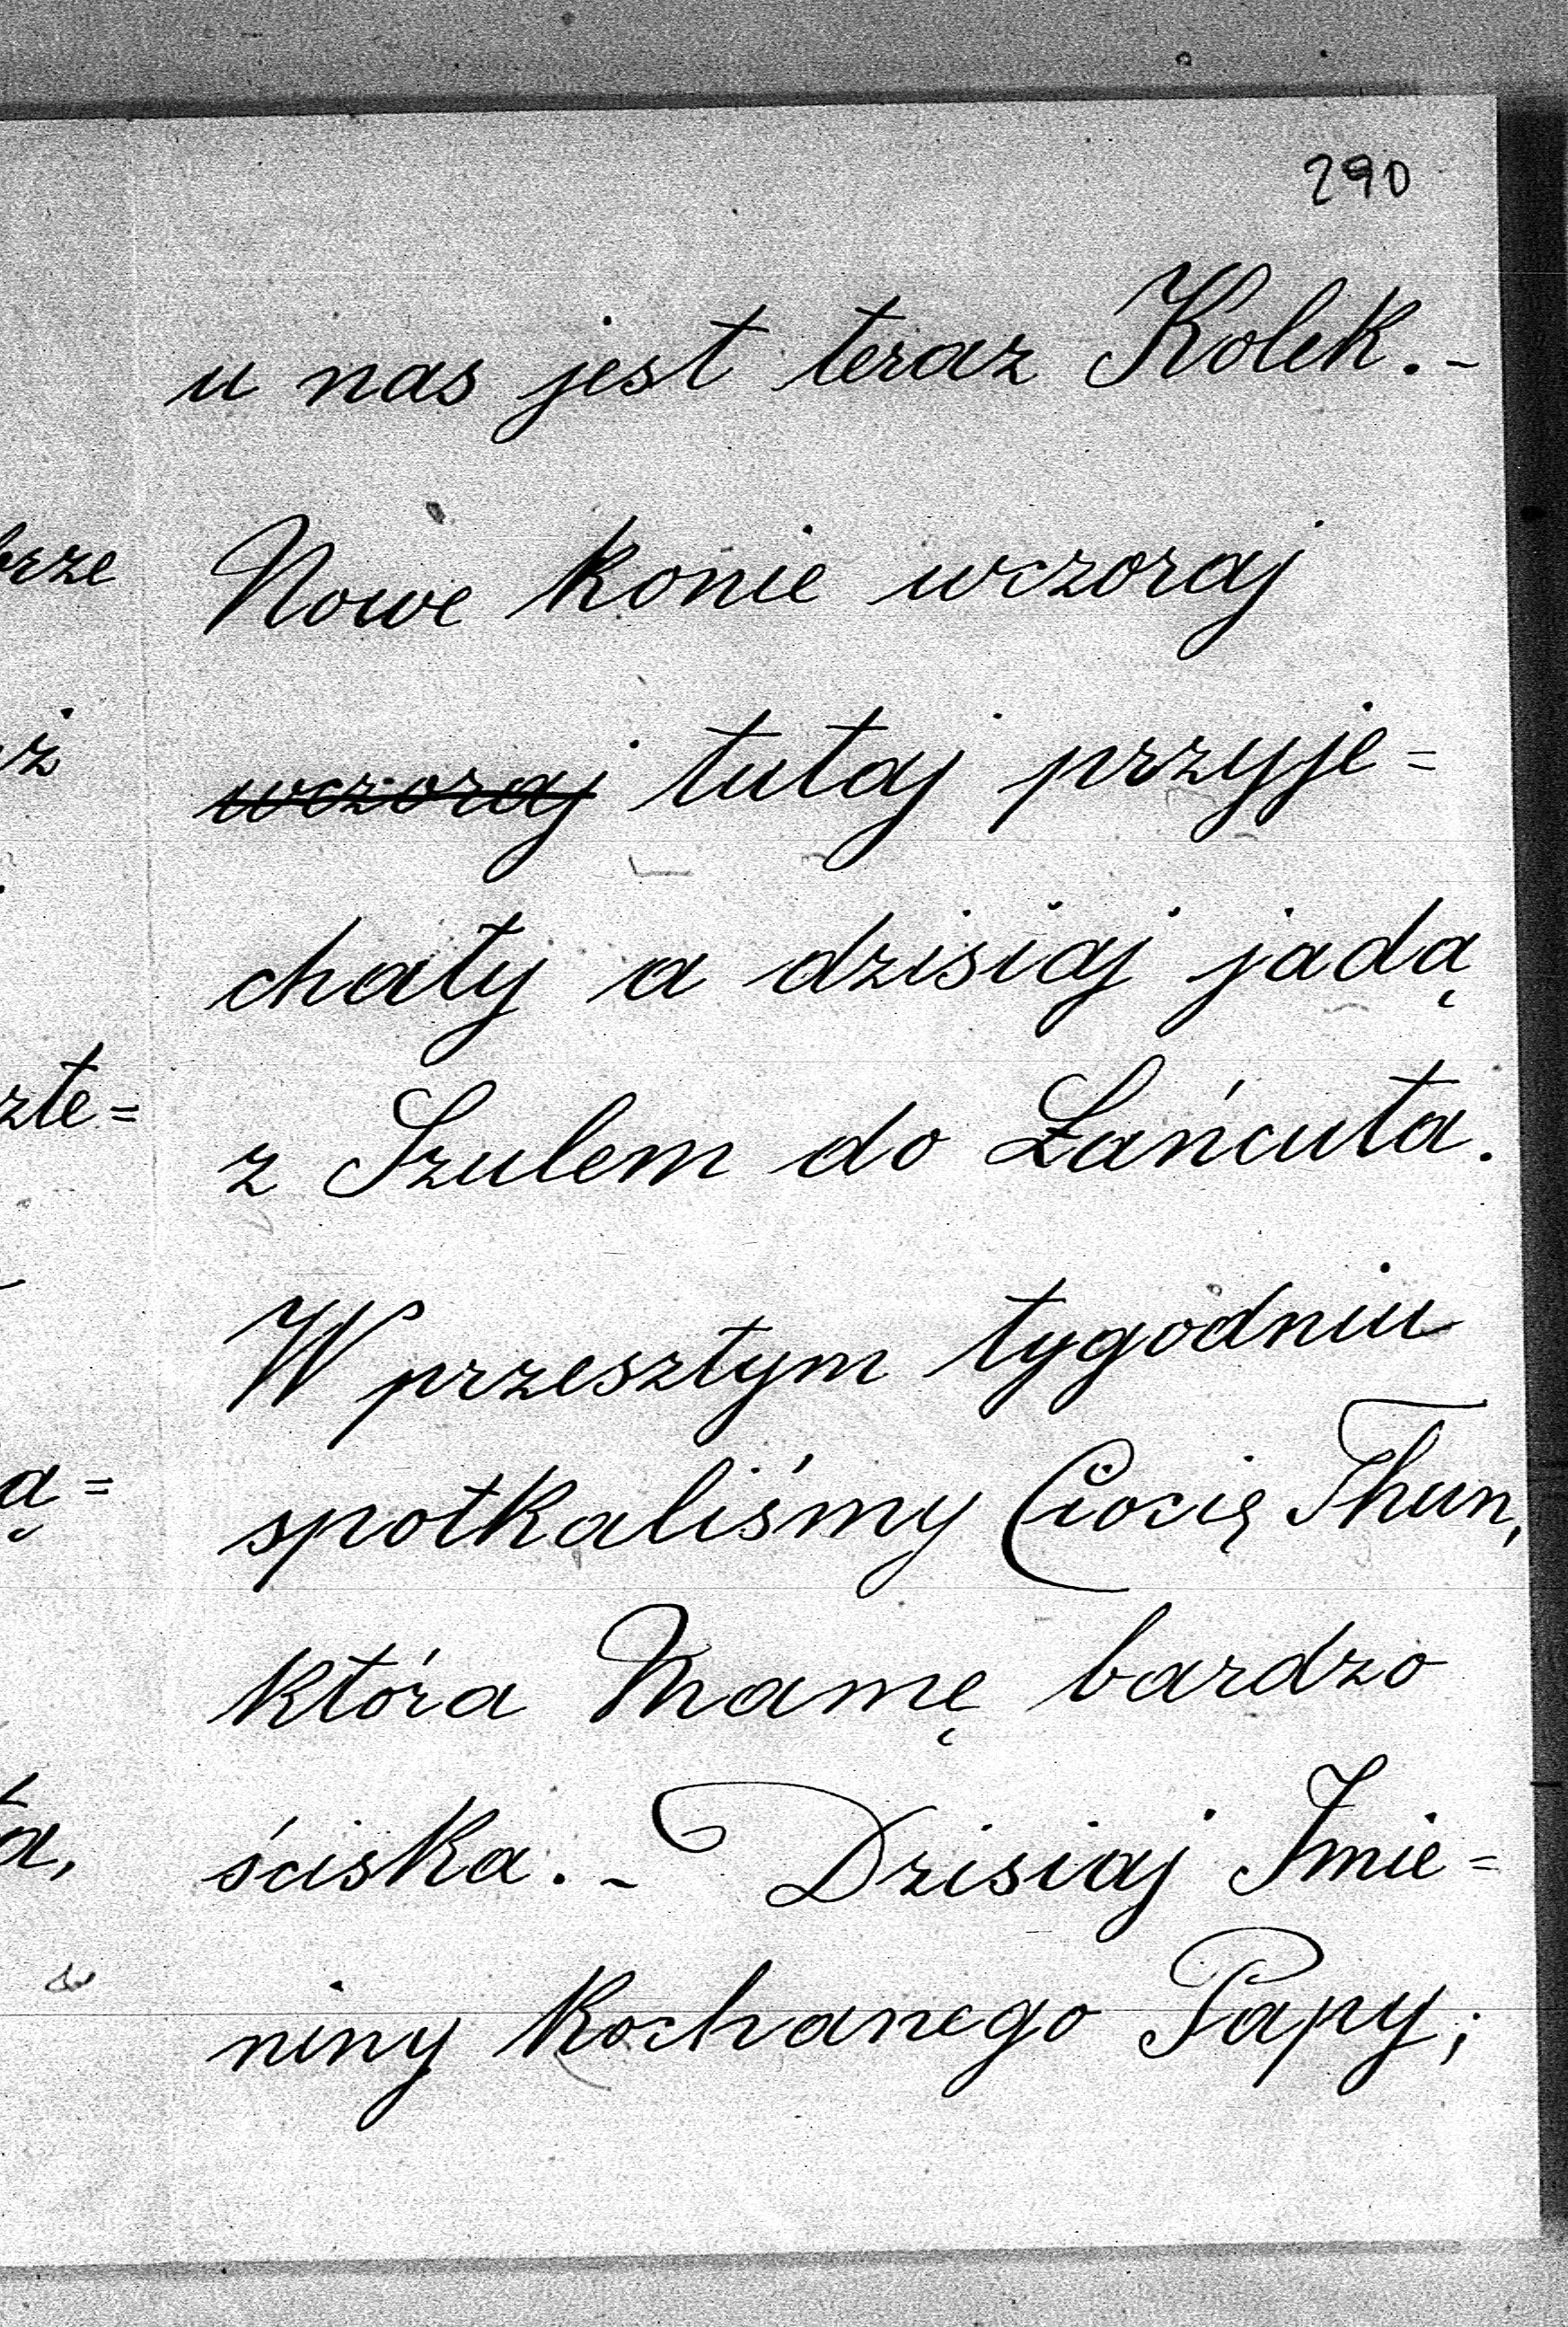 290
u nas jest teraz Kolek.-
Nowe konie wczoraj
wczoraj tutaj przyje=
chały a dzisiaj jadą
z Szulem do Łańcuta.
W przeszłym tygodniu
spotkaliśmy Ciocię Thun,
która Mamę bardzo
ściska.- Dzisiaj Imie=
niny kochanego Papy;